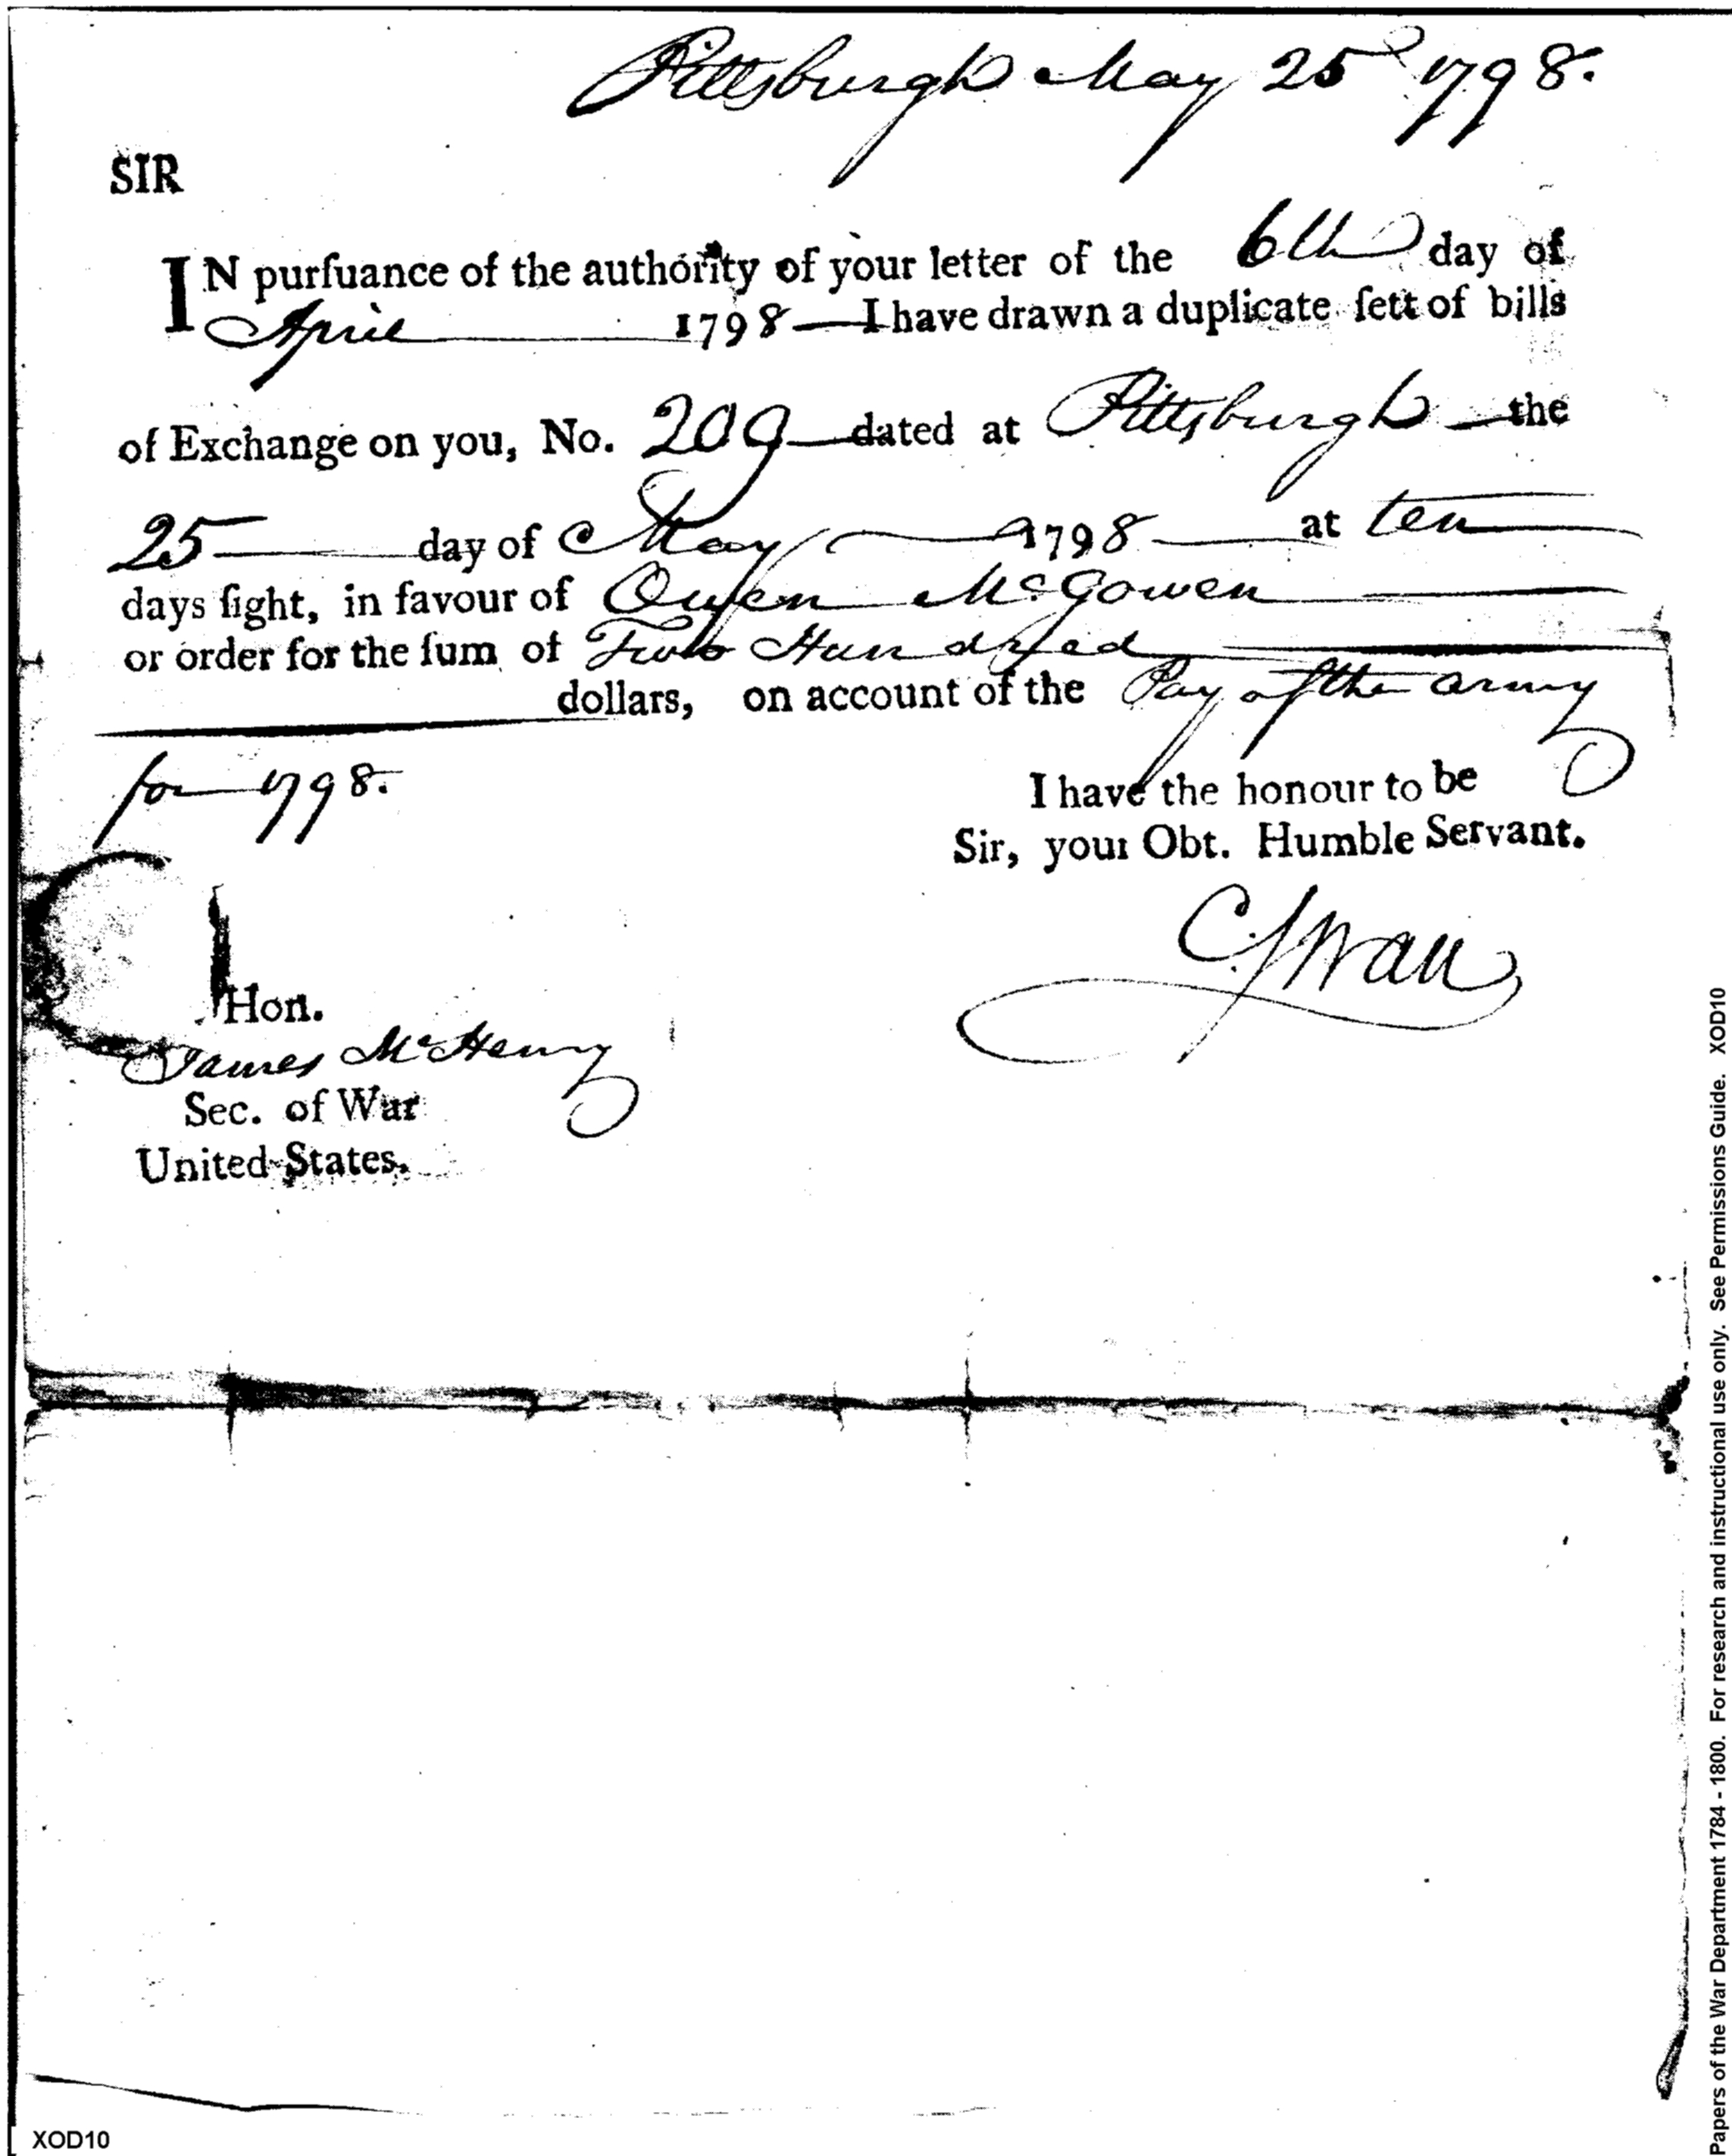 Pittsburgh May 25 1798.
SIR
IN purſuance of the authority of your letter of the 6th day of
April 1798 — I have drawn a duplicate ſett of bills
of Exchange on you, No. 209 dated at Pittsburgh the
25 day of May 1798 at ten
days ſight, in favour of Owen McGowen
or order for the ſum of Two Hundred
dollars, on account of the Pay of the army
for 1798.
I have the honour to be
Sir, your Obt. Humble Servant.
C. Swan
Hon.
James McHenry
Sec. of War
United States.
Papers of the War Department 1784 - 1800. For research and instructional use only. See Permissions Guide. XOD10
XOD10